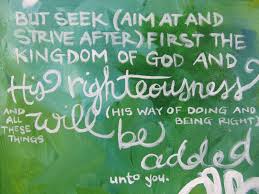 BUT SEEK (AIM AT AND
STRIVE AFTER) FIRST THE
KINGDOM OF GOD AND
His righteousness
AND ALL THESE THINGS
(HIS WAY OF DOING AND BEING RIGHT)
will be
added
unto you.